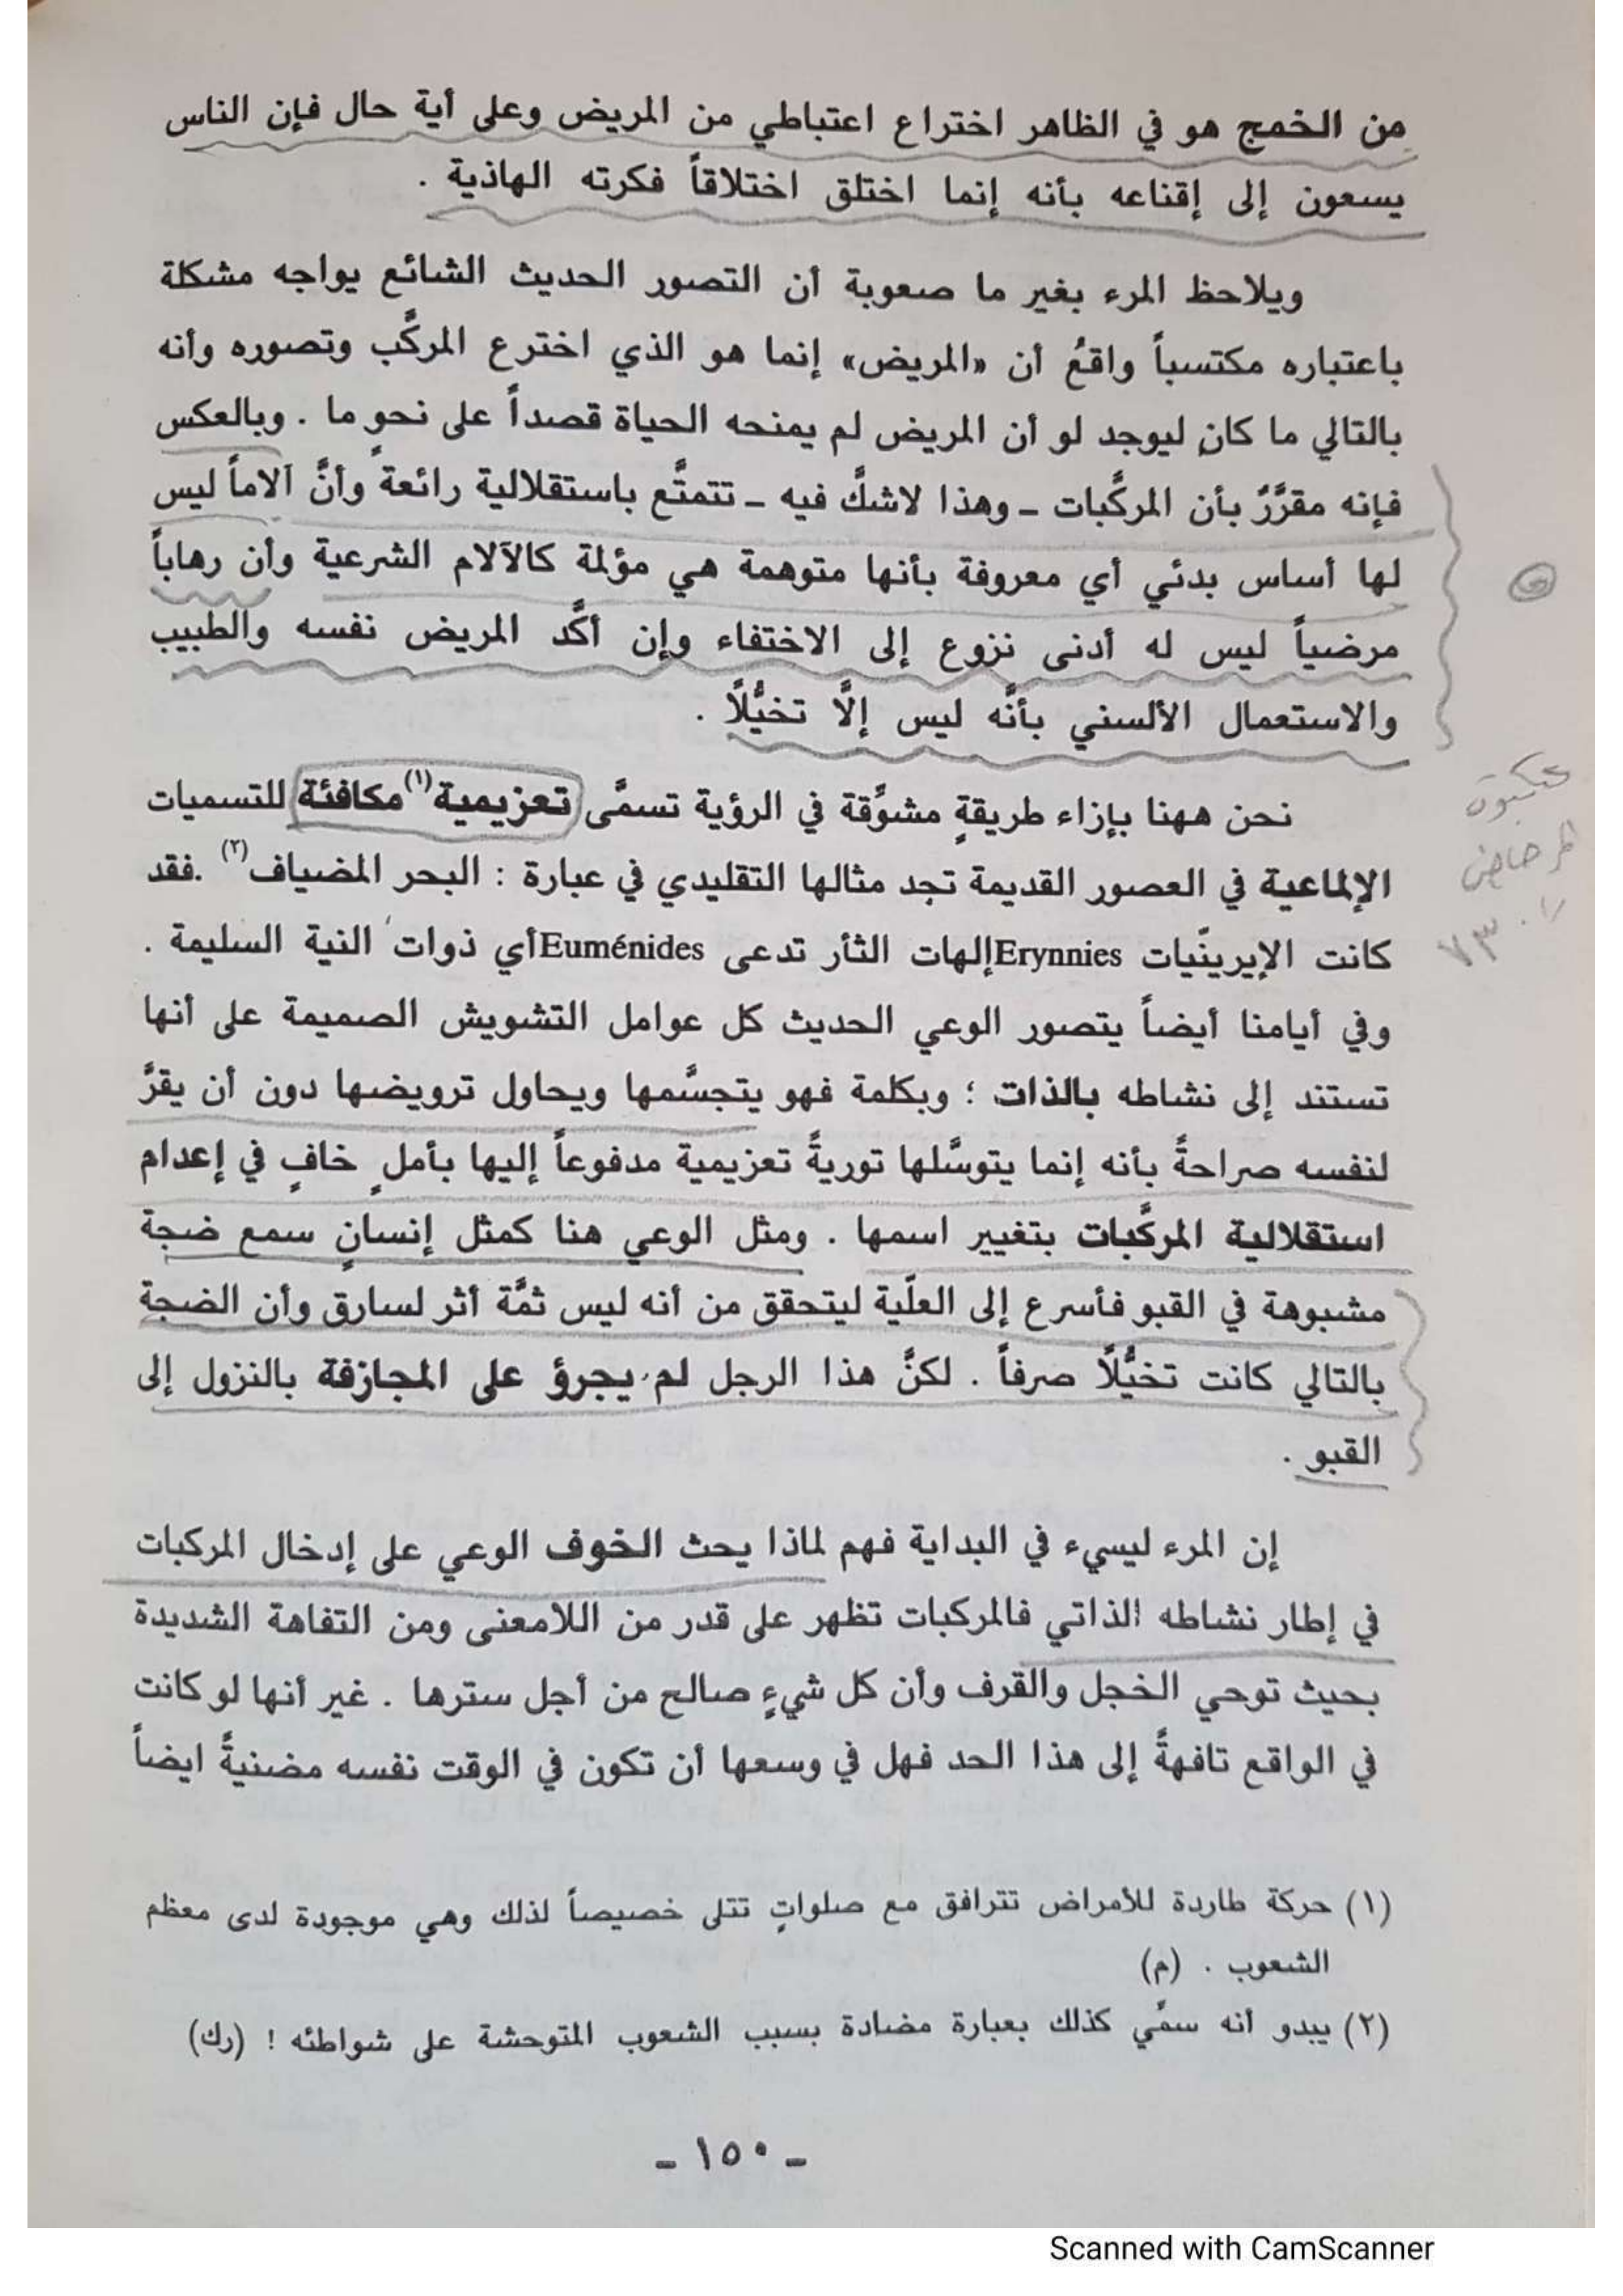 من الخمج هو في الظاهر اختراع اعتباطي من المريض وعلى أية حال فإن الناس
يسعون إلى إقناعه بأنه إنما اختلق اختلاقاً فكرته الهاذية .
ويلاحظ المرء بغير ما صعوبة أن التصور الحديث الشائع يواجه مشكلة
باعتباره مكتسباً واقعُ أن «المريض» إنما هو الذي اخترع المركَّب وتصوره وأنه
بالتالي ما كان ليوجد لو أن المريض لم يمنحه الحياة قصداً على نحوٍ ما . وبالعكس
فإنه مقرَّرٌ بأن المركَّبات ـ وهذا لاشكَّ فيه ـ تتمتَّع باستقلالية رائعة وأنَّ آلاماً ليس
لها أساس بدئي أي معروفة بأنها متوهمة هي مؤلمة كالآلام الشرعية وأن رهاباً
مرضياً ليس له أدنى نزوع إلى الاختفاء وإن أكَّد المريض نفسه والطبيب
والاستعمال الألسني بأنَّه ليس إلَّا تخيُّلًا .
نحن ههنا بإزاء طريقةٍ مشوَّقة في الرؤية تسمَّى تعزيمية(١) مكافئة للتسميات
الإلماعية في العصور القديمة تجد مثالها التقليدي في عبارة : البحر المضياف(٢) .فقد
كانت الإيرينّيات Erynnies إلهات الثأر تدعى Euménides أي ذوات النية السليمة .
وفي أيامنا أيضاً يتصور الوعي الحديث كل عوامل التشويش الصميمة على أنها
تستند إلى نشاطه بالذات ؛ وبكلمة فهو يتجسَّمها ويحاول ترويضها دون أن يقرَّ
لنفسه صراحةً بأنه إنما يتوسَّلها توريةً تعزيمية مدفوعاً إليها بأملٍ خافٍ في إعدام
استقلالية المركَّبات بتغيير اسمها . ومثل الوعي هنا كمثل إنسانٍ سمع ضجة
مشبوهة في القبو فأسرع إلى العلّية ليتحقق من أنه ليس ثمَّة أثر لسارق وأن الضجة
بالتالي كانت تخيُّلًا صرفاً . لكنَّ هذا الرجل لم يجرؤ على المجازفة بالنزول إلى
القبو .
إن المرء ليسيء في البداية فهم لماذا يحث الخوف الوعي على إدخال المركبات
في إطار نشاطه الذاتي فالمركبات تظهر على قدر من اللامعنى ومن التفاهة الشديدة
بحيث توحي الخجل والقرف وأن كل شيءٍ صالح من أجل سترها . غير أنها لو كانت
في الواقع تافهةً إلى هذا الحد فهل في وسعها أن تكون في الوقت نفسه مضنيةً ايضاً
(١) حركة طاردة للأمراض تترافق مع صلواتٍ تتلى خصيصاً لذلك وهي موجودة لدى معظم
الشعوب . (م)
(٢) يبدو أنه سمِّي كذلك بعبارة مضادة بسبب الشعوب المتوحشة على شواطئه ! (رك)
ـ ١٥٠ ـ
Scanned with CamScanner